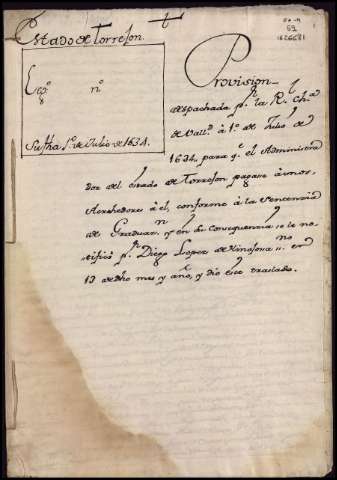 Estado de Torreson.
Leg.º nº
Su fha 1º de Julio de 1634.
Provision
despachada pr. la Rl. chª
de Vallª à 1º. de Julio de
1634, para qe. el Administra
dor del estado de Torreson pagase à unos,
Acrehedores à él, conforme à la Sentencia
de Graduan., y en su consequencia, se le no-
tificó pr. Diego Lopez de Hinojosa en
13 de dho mes y año, y dio este traslado.
59